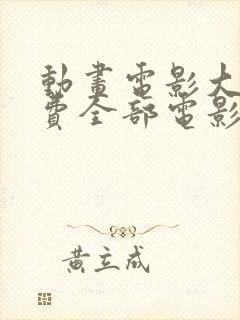 動畫電影大
費全部電影
黃立成